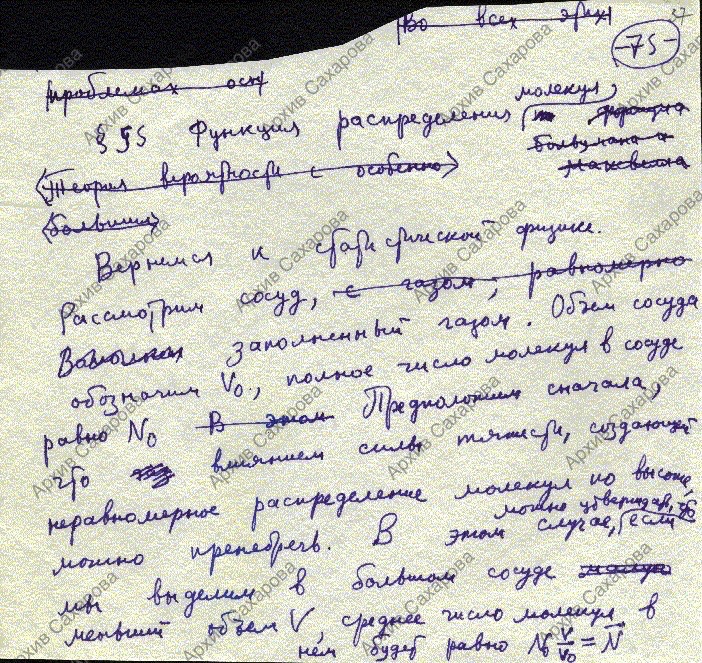 Во всех этих
37
-75-
проблемах осн
§ 35 Функция распределения молекул
Больцмана и
Максвелла
(Теория вероятности с особенно)
(большим)
Вернемся к статистической физике.
Рассмотрим сосуд, с газом, равномерно
заполненный газом. Объем сосуда
обозначим V₀, полное число молекул в сосуде
равно N₀ В этом Предположим сначала,
что влиянием силы тяжести, создающей
неравномерное распределение молекул по высоте,
можно пренебречь. В этом случае, можно утверждать, что если
мы выделим в большом сосуде
меньший объем V, среднее число молекул в
нем будет равно N₀ V/V₀ = N̄
Архив Сахарова